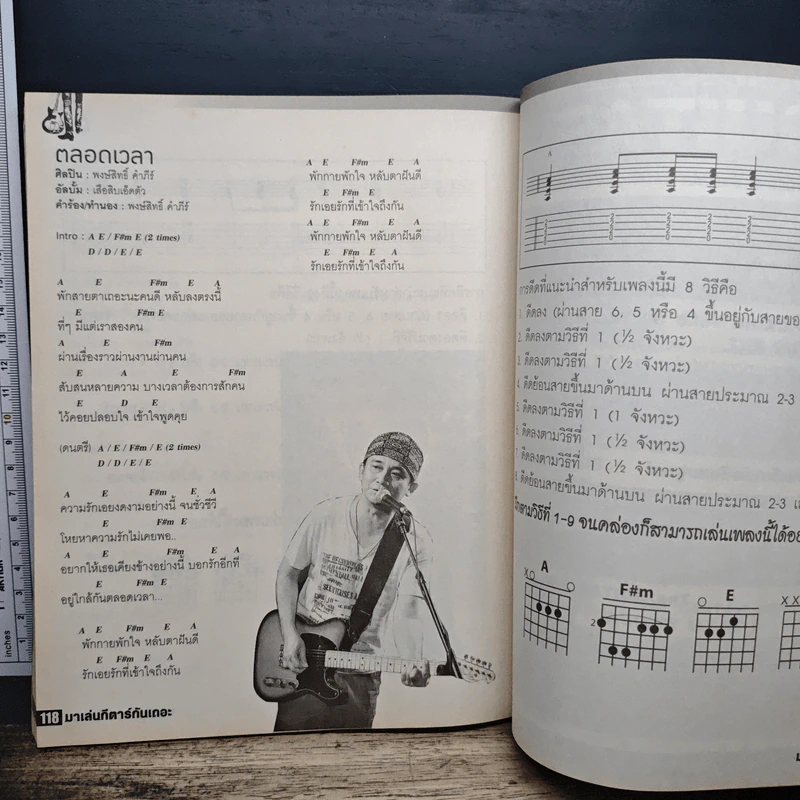 ตลอดเวลา
ศิลปิน : พงษ์สิทธิ์ คำภีร์
อัลบั้ม : เสือสิบเอ็ดตัว
คำร้อง/ทำนอง : พงษ์สิทธิ์ คำภีร์
Intro : A E / F#m E (2 times)
D / D / E / E
A E F#m E A
พักสายตาเถอะนะคนดี หลับลงตรงนี้
E F#m E
ที่ๆ มีแต่เราสองคน
A E F#m
ผ่านเรื่องราวผ่านงานผ่านคน
E A E F#m
สับสนหลายความ บางเวลาต้องการสักคน
E D E
ไว้คอยปลอบใจ เข้าใจพูดคุย
(ดนตรี) A / E / F#m / E (2 times)
D / D / E / E
A E F#m E A
ความรักเอยงดงามอย่างนี้ จนชั่วชีวี
E F#m E
โหยหาความรักไม่เคยพอ..
A E F#m E A
อยากให้เธอเคียงข้างอย่างนี้ บอกรักอีกที
E F#m E
อยู่ใกล้กันตลอดเวลา...
A E F#m E A
พักกายพักใจ หลับตาฝันดี
E F#m E A
รักเอยรักที่เข้าใจถึงกัน
118 มาเล่นกีตาร์กันเถอะ
A E F#m E A
พักกายพักใจ หลับตาฝันดี
E F#m E
รักเอยรักที่เข้าใจถึงกัน
A E F#m E A
พักกายพักใจ หลับตาฝันดี
E F#m E A
รักเอยรักที่เข้าใจถึงกัน
A
การดีดที่แนะนำสำหรับเพลงนี้มี 8 วิธีคือ
1. ดีดลง (ผ่านสาย 6, 5 หรือ 4 ขึ้นอยู่กับสายของ
2. ดีดลงตามวิธีที่ 1 (½ จังหวะ)
3. ดีดลงตามวิธีที่ 1 (½ จังหวะ)
4. ดีดย้อนสายขึ้นมาด้านบน ผ่านสายประมาณ 2-3
5. ดีดลงตามวิธีที่ 1 (1 จังหวะ)
6. ดีดลงตามวิธีที่ 1 (½ จังหวะ)
7. ดีดลงตามวิธีที่ 1 (½ จังหวะ)
8. ดีดย้อนสายขึ้นมาด้านบน ผ่านสายประมาณ 2-3
ตามวิธีที่ 1-9 จนคล่องก็สามารถเล่นเพลงนี้ได้
A F#m E
X X X
2
inches